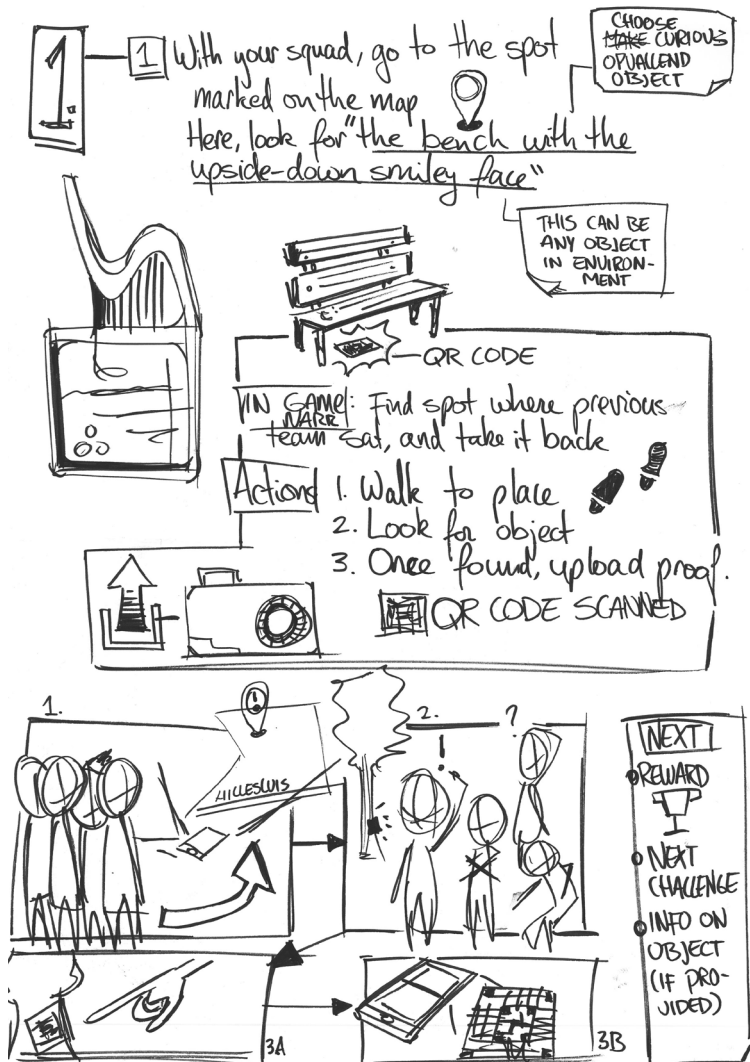 1.
1 With your squad, go to the spot
marked on the map
Here, look for "the bench with the
upside-down smiley face"
CHOOSE
MAKE CURIOUS
OPVALLEND
OBJECT
THIS CAN BE
ANY OBJECT
IN ENVIRON-
MENT
QR CODE
IN GAME
NARR
: Find spot where previous
team sat, and take it back
Actions
1. Walk to place
2. Look for object
3. Once found, upload proof.
QR CODE SCANNED
1.
!
HILLESLUIS
2.
!
?
3A
3B
NEXT
REWARD
NEXT
CHALLENGE
INFO ON
OBJECT
(IF PRO-
VIDED)